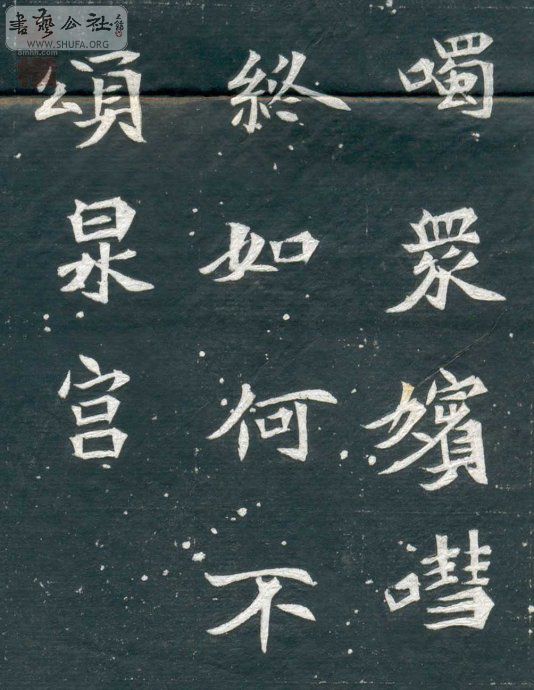 書藝公社
WWW.SHUFA.ORG
噣眾嬪嘒
終如何不
頌泉宫